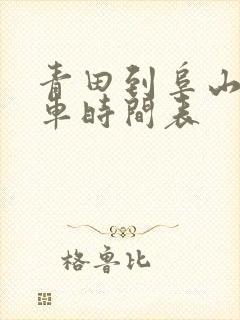 青田到阜山
車時間表
格魯比